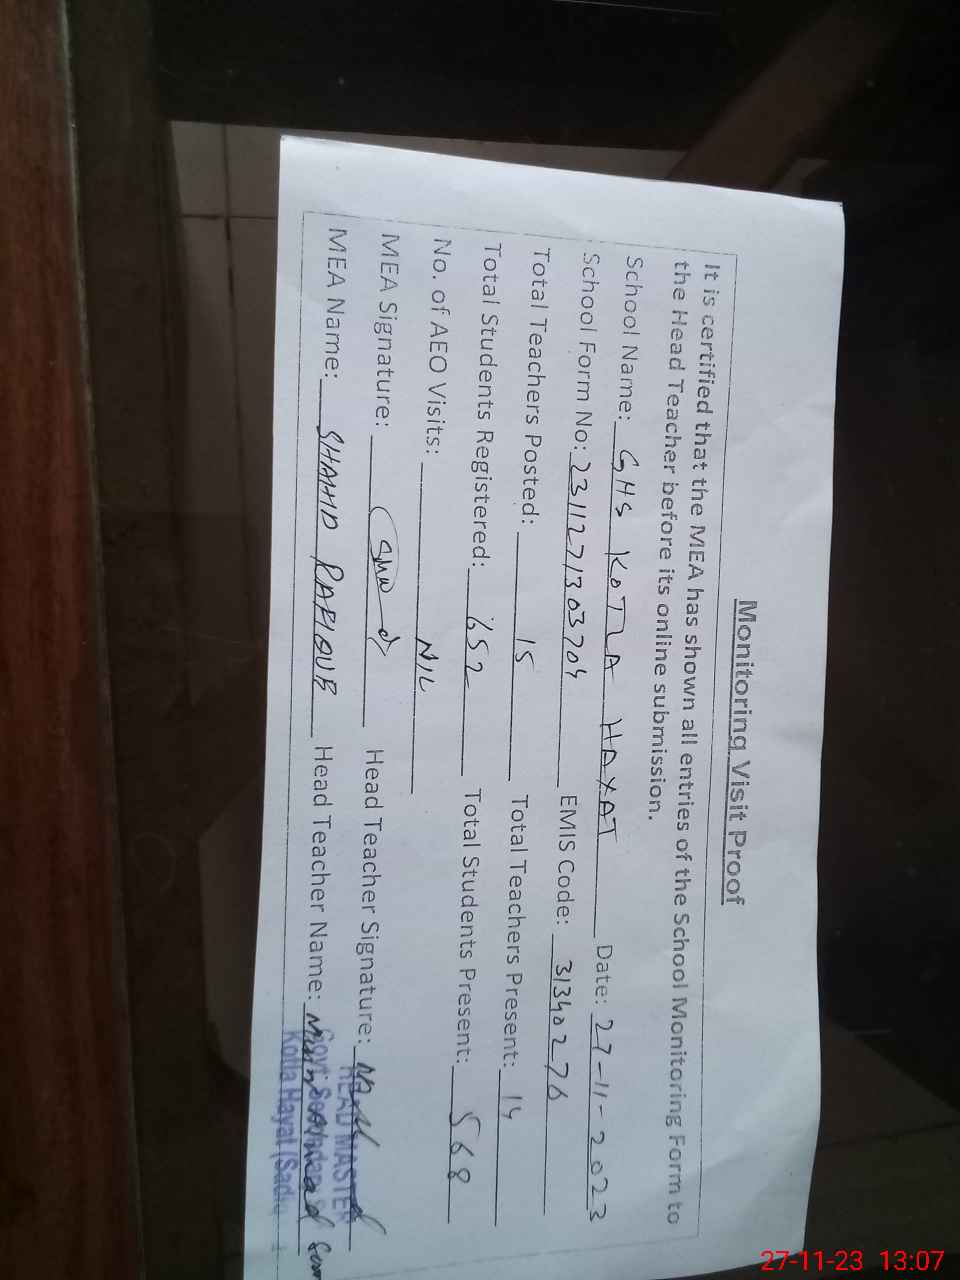 Monitoring Visit Proof
It is certified that the MEA has shown all entries of the School Monitoring Form to
the Head Teacher before its online submission.
School Name: GHS KOTLA HAYAT Date: 27-11-2023
School Form No: 2311271303704 EMIS Code: 31340276
Total Teachers Posted: 15 Total Teachers Present: 14
Total Students Registered: 652 Total Students Present: 568
No. of AEO Visits: NIL
MEA Signature: Head Teacher Signature:
MEA Name: SHAHID RAFIQUE Head Teacher Name:
HEAD MASTER
Govt:
Kotla Hayat (Sadiq
27-11-23 13:07